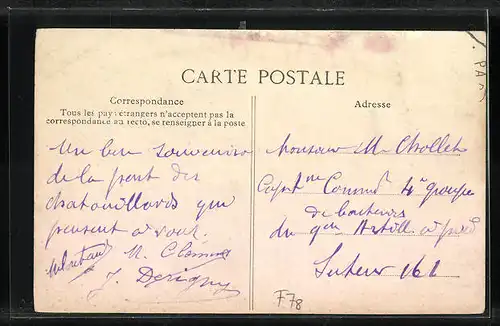 PARIS
CARTE POSTALE
Correspondance
Tous les pays étrangers n'acceptent pas la
correspondance au recto, se renseigner à la poste
Adresse
Un bon souvenir
de la part des
chatouillards qui
pensent à vous.
J. Derigny
Monsieur M. Chollet
Capit ne Commd 4e groupe
de batteries
du 9eme Artill. à pied
Secteur 161
F78